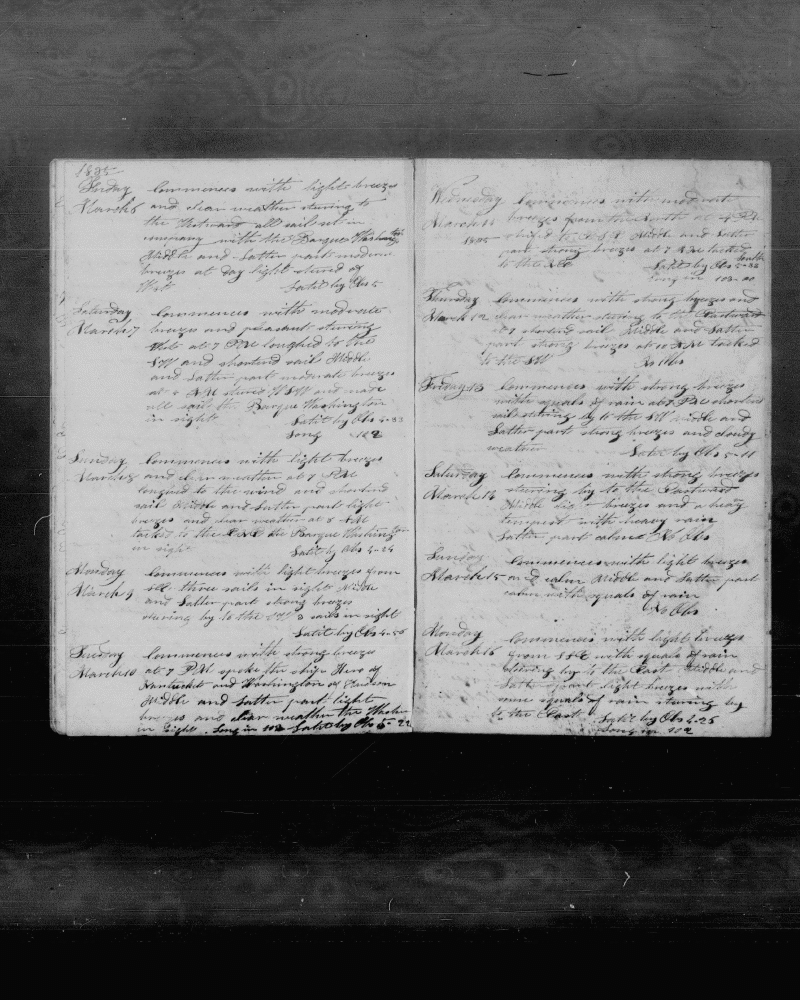 1835
Friday commences with light breeze
March 6 and clear weather stering to
the Westward all sail set in
company with the Barque Washington
Middle and Latter part moderate
breezes at day light stered
West Latit by Obs 5
Saturday commences with moderate
March 7 breezes and pleasant stering
West at 7 PM loughed to the
SW and shortend sail Middle
and Latter part moderate breezes
at AM stered WSW and made
all sail the Barque Washington
in sight Latit by Obs 4-33
Long 102
Sunday commences with light breezes
March 8 and clear weather at 7 PM
loughed to the wind and shortend
sail Middle and Latter part light
breezes and clear weather at 8 AM
tacked to the the Barque Washington
in sight Latit by Obs 4-24
Monday commences with light breezes from
three sails in sight Middle
March 9 and Latter part strong breezes
stering by to the 3 sails in sight
Latit by Obs 4-56
Tuesday commences with strong breezes
March 10 at 7 PM spoke the ship Hero of
Nantucket and Washington of Hudson
Middle and Latter part light
breezes and clear weather the
in Sight Long in 102 Latit by Obs 5-22
Wednesday commences with moderate
March 11 breezes from the North at 4 PM
1835 Middle and Latter
part strong breezes at 7 AM tacked
to the Latit by Obs 5-32 South
Long in 103-00
Thursday commences with strong breezes and
March 12 clear weather stering to the Eastward
at shortend sail Middle and Latter
part strong breezes at AM tacked
to the SW No Obs
Friday 13 commences with strong breezes
with squals of rain at PM shortend
sail stering by to the SW Middle and
Latter part strong breezes and cloudy
weather Latit by Obs 5-11
Saturday commences with strong breezes
stering by to the Eastward
March 14 Middle breezes and a heavy
tempest with heavy rain
Latter part calms No Obs
Sunday commences with light breezes
March 15 and calm Middle and Latter part
calm with squals of rain
No Obs
Monday commences with light breezes
March 16 from with squals of rain
stering by to the East Middle and
Latter part light breezes with
some squals of rain stering by
to the East Latit by Obs 4-25
Long in 102